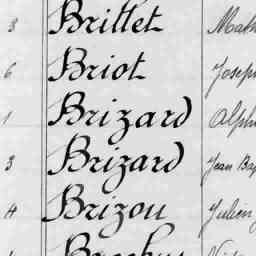 3 Brittet
6 Briot Joseph
1 Brizard Alph
3 Brizard Jean Bap
4 Brizou Julien